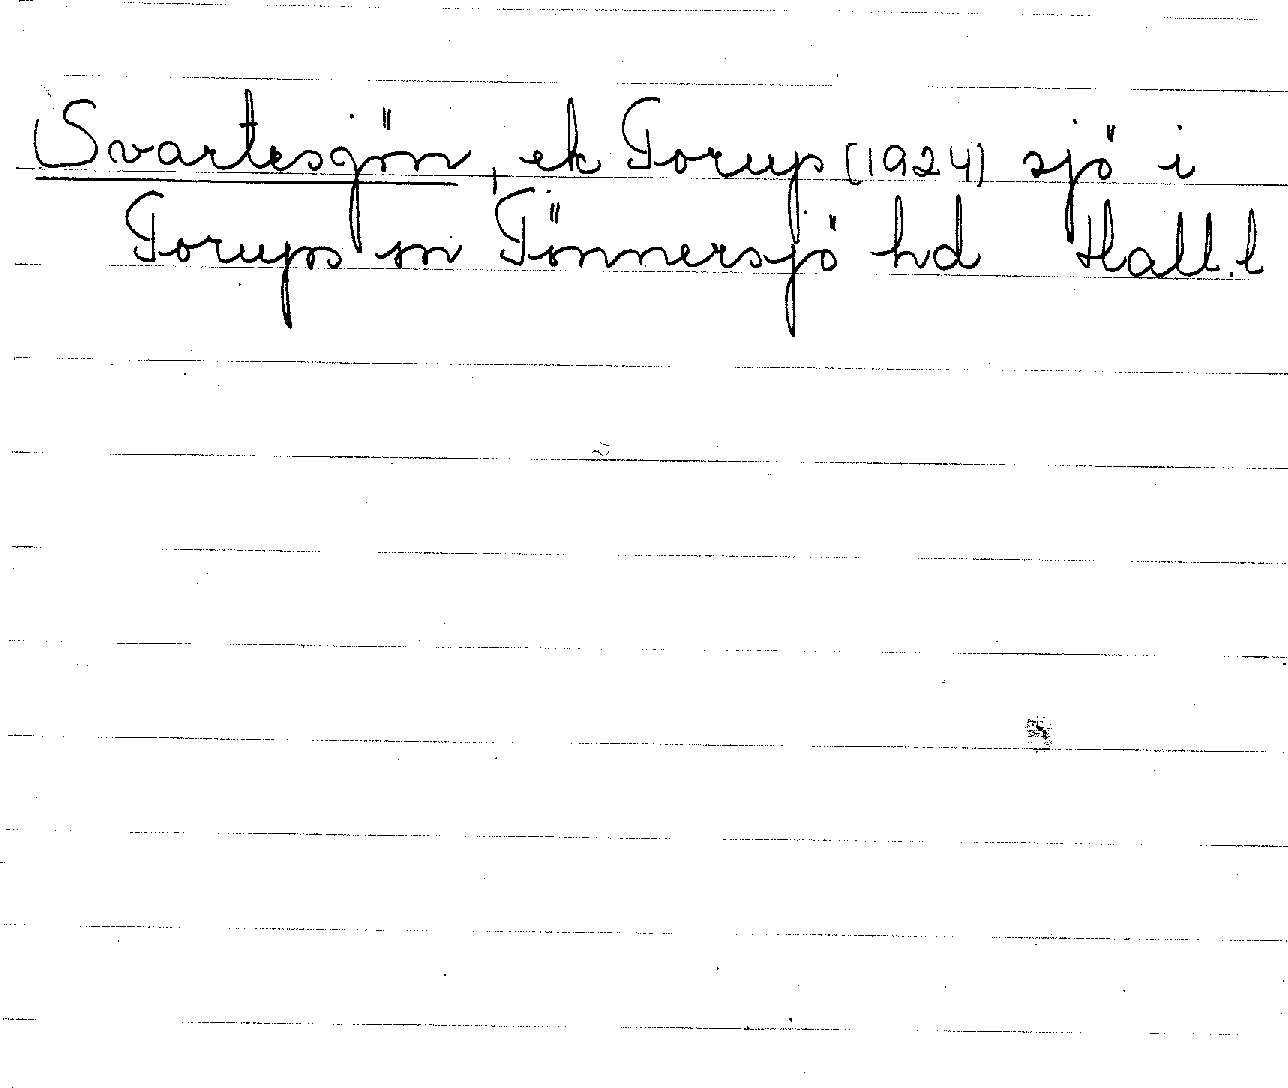 Svartesjön, ek Torup (1924) sjö i
Torups sn Tönnersjö hd Hall.l